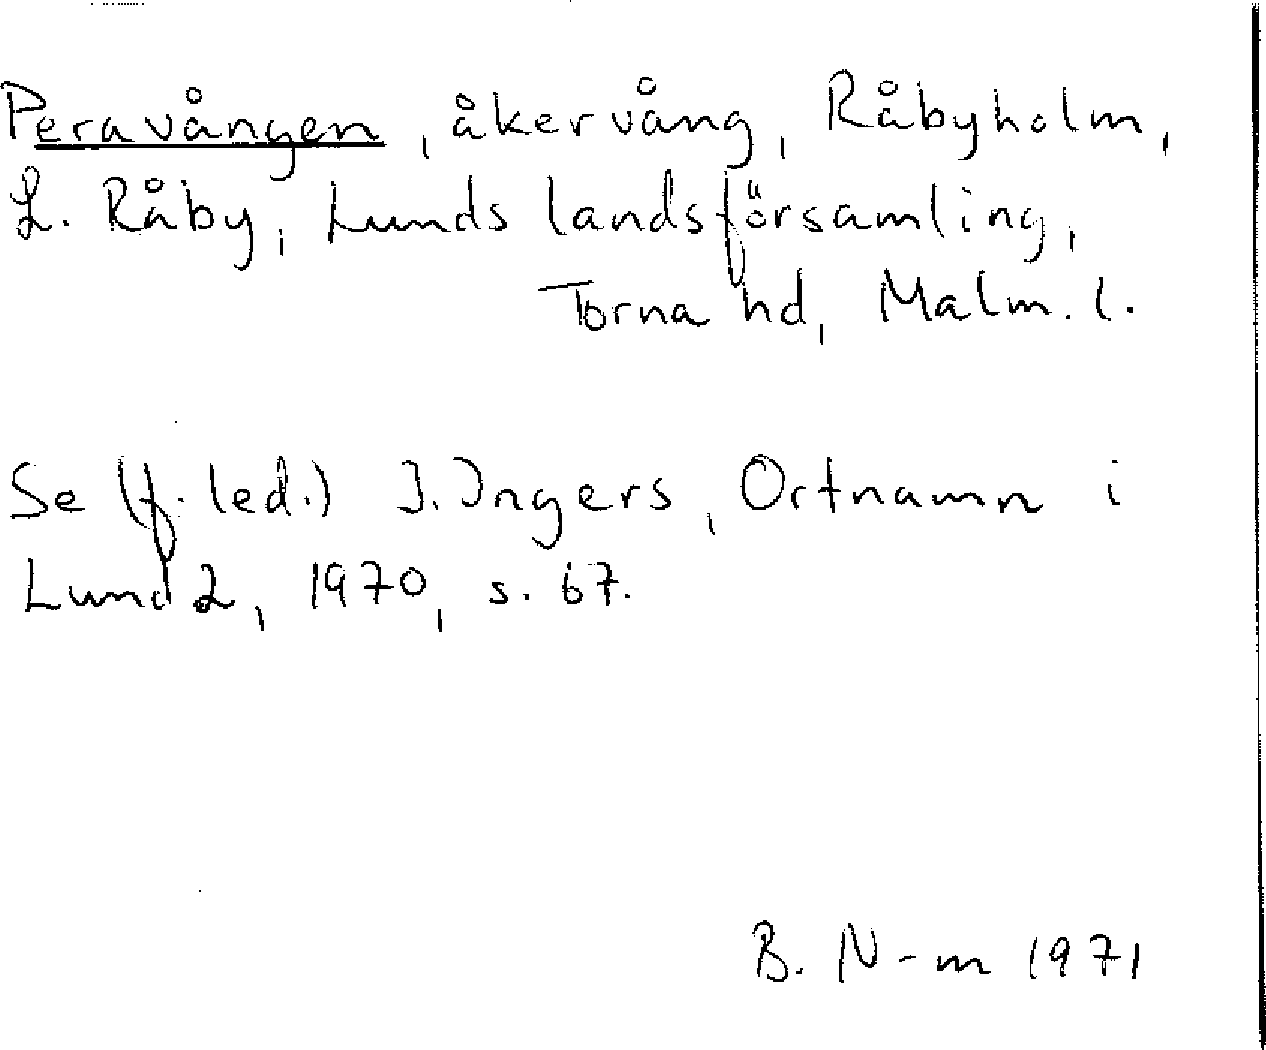 Peravången, åkervång, Råbyholm,
L. Råby, Lunds landsförsamling,
Torna hd, Malm. l.
Se (f. led.) I. Ingers, Ortnamn i
Lund 2, 1970, s. 67.
B. N-m 1971